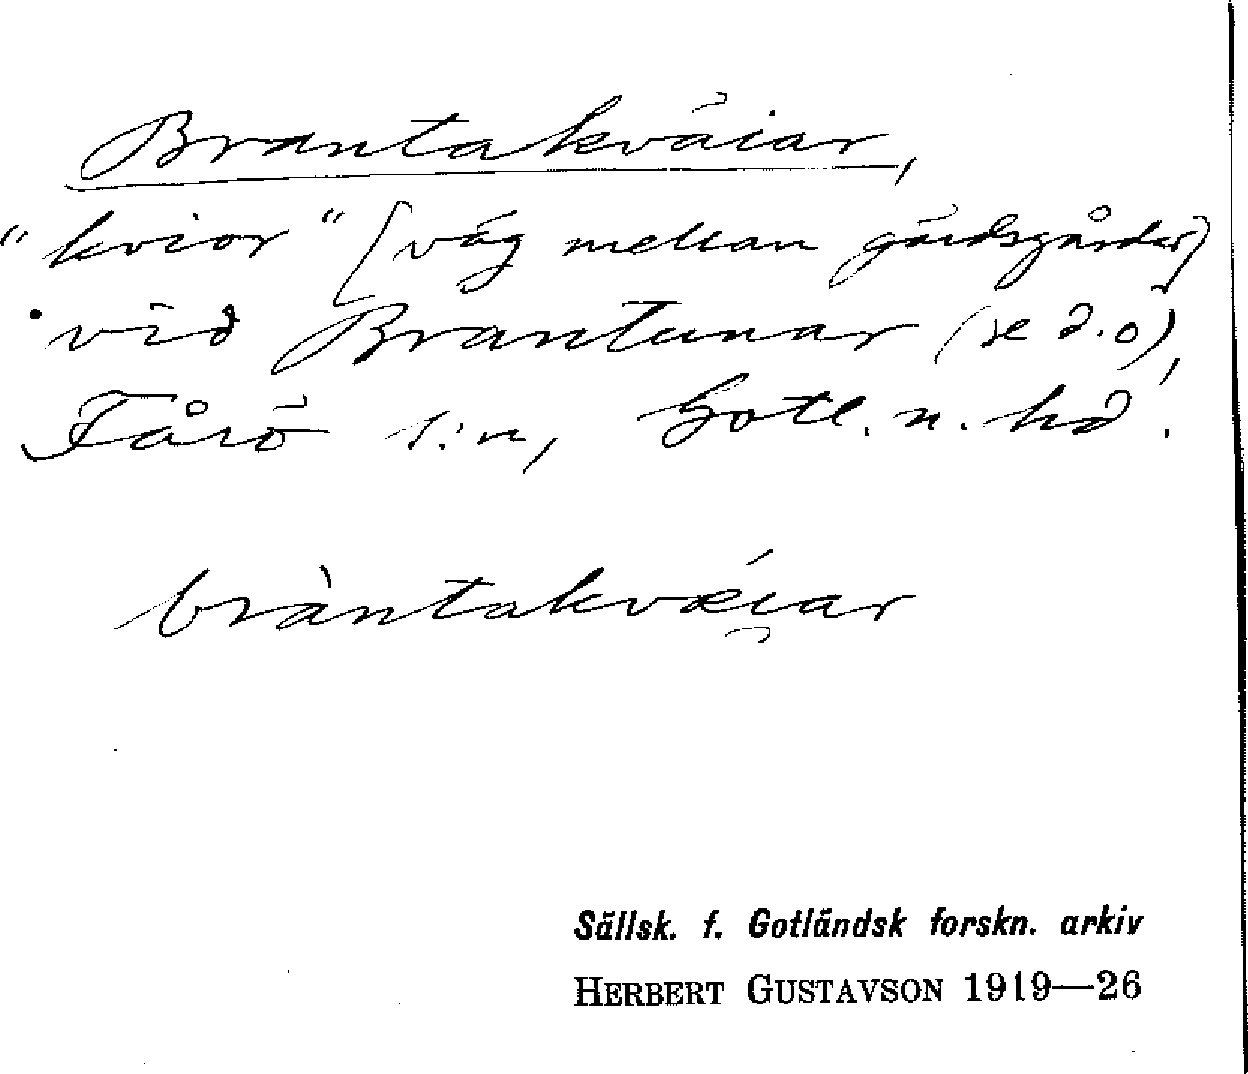 Brantakväiar,
"kvior" (väg mellan gärdsgårdar)
vid Brantunar (se d.o),
Fårö s:n, Gotl. n. hd.
bràntakvǽi̯ar
Sällsk. f. Gotländsk forskn. arkiv
HERBERT GUSTAVSON 1919—26